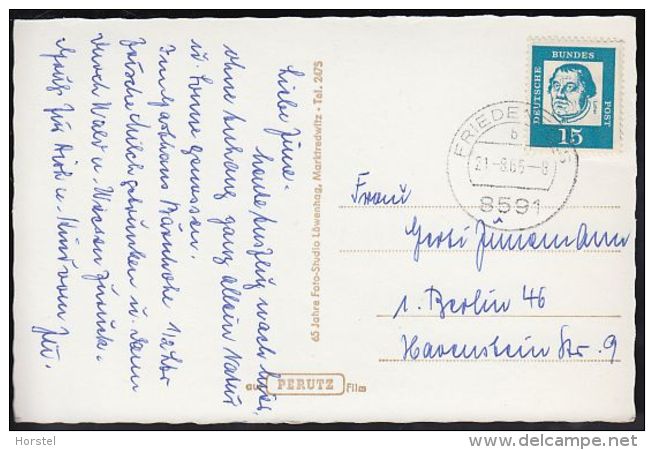 Liebe Jüne.
heute Ausflug nach hier,
ohne Anhang ganz allein Natur
u. Sonne genossen.
Im Gasthaus Bärnhöhe 1/2 Ltr
frische Milch getrunken u. dann
durch Wald u. Wiesen zurück.
Gruß für Dich u. Kind vom
65 Jahre Foto-Studio Löwenhag, Marktredwitz · Tel. 2075
auf PERUTZ Film
DEUTSCHE BUNDES POST
15
FRIEDEN
b
21.-8.65-8
8591
Frau
Gerti Jünemann
1. Berlin 46
Havensteinstr. 9
Horstel
www.delcampe.net